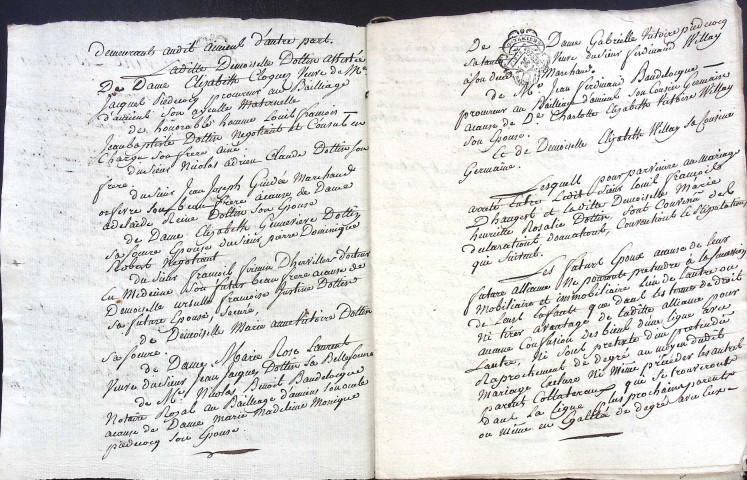 demeurants audit amiens d'autre part.
Ladite Demoiselle Dottin assistée
De Dame Elisabeth Cloquet Veuve de Me
Jacques piedecocq procureur au Bailliage
d'amiens son ayeulle Maternelle
de honorable homme Louis françois
Jean baptiste Dottin Negotiant et Consul en
Charge son frere ainé
du sieur Nicolas adrien Claude Dottin son
frere
du sieur Jean Joseph Guidée Marchand
orfevre son beau frere acause de Dame
adelaide Reine Dottin son Epouse
de Dame Elizabeth Genneviève Dottin
sa soeure Epouse du sieur pierre Dominique
Robert Negotiant
du sieur francois firmin Dhervillez Docteur
en Médecine son futur beau frere acause de
Demoiselle ursulle françoise Justine Dottin
sa future Epouse, soeure,
de Demoiselle Marie anne Victoire Dottin
sa soeure.
de Dame Marie Rose Laurent
Veuve du sieur Jean Jacques Dottin sa Belle soeure
de Me Nicolas Benoit Baudelocque
Notaire Royal au Bailliage d'amiens son oncle
acause de Dame marie Madeleine Monique
piedecocq son Epouse.
De Dame Gabrielle Victoire piedecocq
sa tante Veuve du sieur ferdinand Willay
a son deces Marchand.
de Me Jean ferdinand Baudelocque
procureur au Bailliage d'amiens son Cousin Germain
acause de De Charlotte Elizabeth Victoire Willay
son Epouse.
Et de Demoiselle Elizabeth Willay sa Cousine
Germaine.
Lesquels pour parvenir au Mariage
arreté Entre Ledit sieur Louis françois
Dhangest et Laditte Demoiselle Marie
henriette Rosalie Dottin sont Convenus des
declarations, donations, Conventions et Stipulations
qui suivent.
Les futurs Epoux acause de leur
future alliance Ne pouront pretendre à la succession
Mobiliaire et immobiliaire L'un de L'autre ou
de Leurs Enfants que dans les termes de droit
Ni tirer avantage de laditte alliance pour
aucune Confusion des biens d'une ligne avec
L'autre, Ni sous pretexte d'un pretendu
Raprochement de degré au moyen dudit
Mariage exclure Ni Même précéder les autres
parents Collateraux qui se trouveront
dans La Ligne plus prochains parents
ou même en Egalité de degrés avec Eux